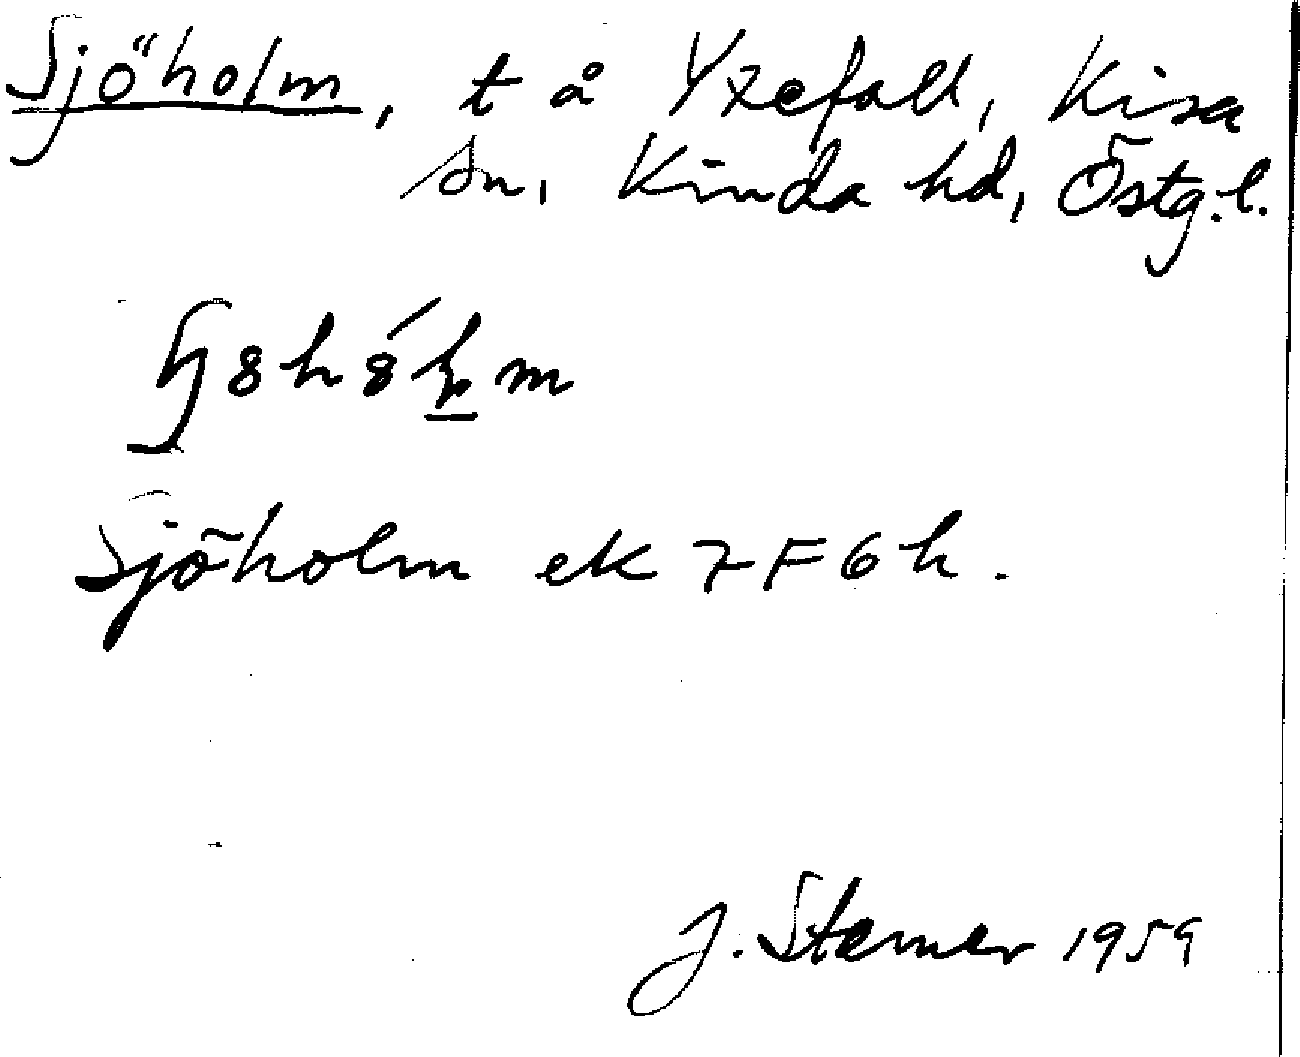 Sjöholm, t å Yxefall, Kisa
sn, Kinda hd, Östg.l.
Sjöholm ek 7F6h.
J. Sterner 1959